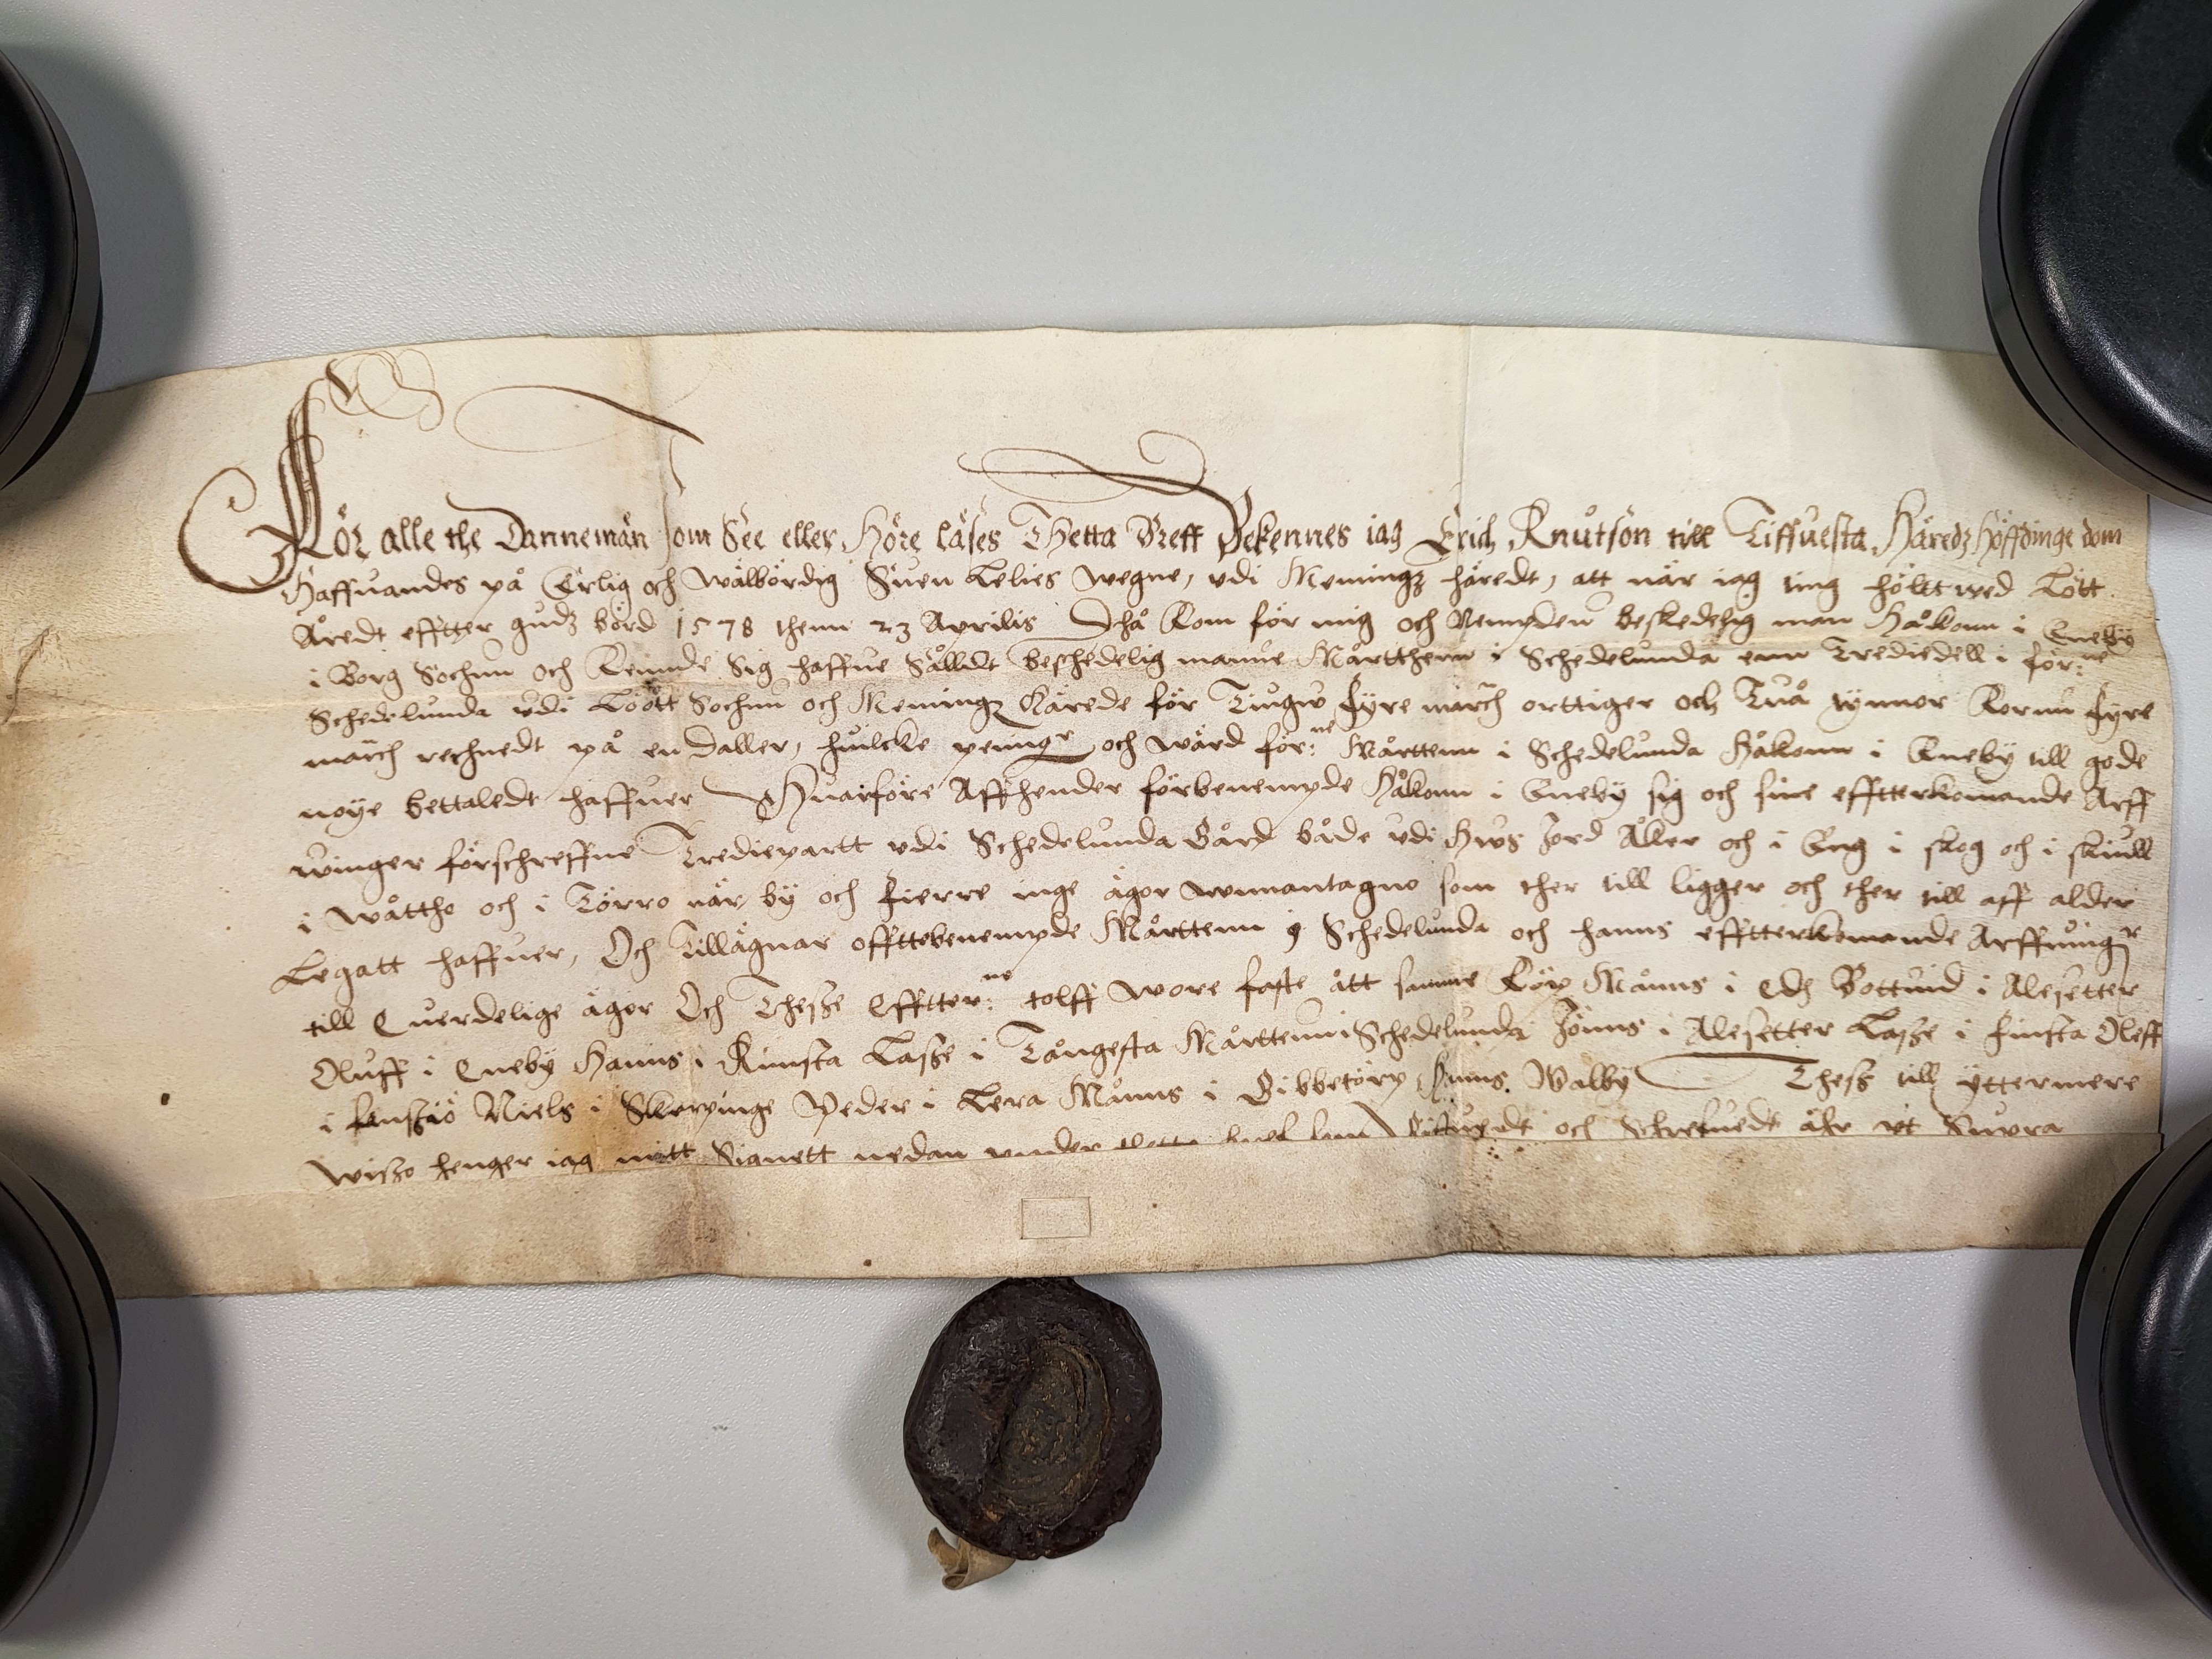 För alle the Danneman som See eller Höre läses Thetta Breff Bekennes iag Erich Knutson till Tiffuesta Häredz höffdinge dom
haffuandes på Erlig och wälbördig Suen Eelies wegne, vdi Memingz häredt, att när iag ting höltt wed Lött
Åredt efftter gudz börd 1578 thenn 23 Aprilis Dhå kom för mig och Nempden beskedelig man Håkonn i Eneby
i Borg Sochnn och kennde sig haffue Sålldt beschedelig manne Mårtthenn i Schedelunda enn Trediedell i för:ne
Schedelunda vdi Löött Sochnn och Memingz Härede för Tiugu fyre march orttiger och Tuå tynnor Kornn fyre
march rechnedt på en daller, huilcke peningr och wärd för:ne Mårttenn i Schedelunda Håkonn i Eneby till gode
nöye bettaledt haffuer Huarföre Affhender förbenempde Håkonn i Eneby sig och sine effterkomande Arff
winger förschreffne Trediepartt vdi Schedelunda Gård både vdi Hws Jord Åker och i Eng i skog och i skiull
i wåttho och i Törro när by och fierre inge ägor wnnantagno som ther till ligger och ther till aff alder
Legatt haffuer, Och Tillägnar offttebenempde Mårttenn i Schedelunda och hanns effterkomande Arffuingr
till Euerdelige ägor Och Thesse Efftter:ne tolff wore faste ått samme Köp Månns i Edz Bottuid i Alesetter
Oluff i Eneby Hanns i Runsta Lasse i Tångesta Mårttenn i Schedelunda Jönns i Alesetter Lasse i finsta Oleff
i Niels i Skerpinge Peder i Lera Månns i Gibbetorp Hanns Walby Thess till yttermere
wisso henger iag mitt Signett nedan vnder thetta bref som giffuedt och Schreffuedt åhr vt Supra